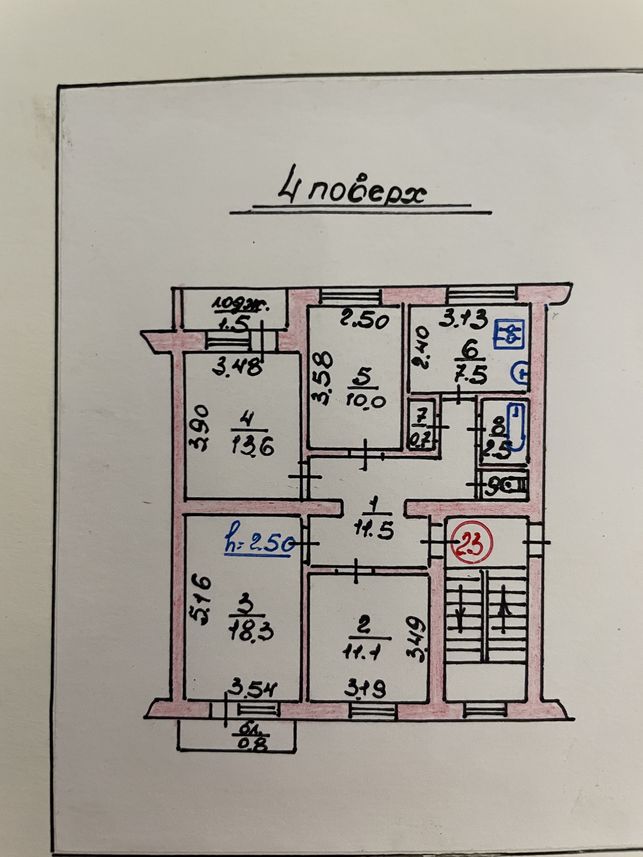 4 поверх
лодж.
1.5
3.48
3.90
4
13.6
2.50
3.58
5
10.0
3.13
2.40
6
7.5
7
0.7
8
2.5
9
1
11.5
23
h=2.50
5.16
3
18.3
3.54
2
11.1
3.49
3.19
бл.
0.8